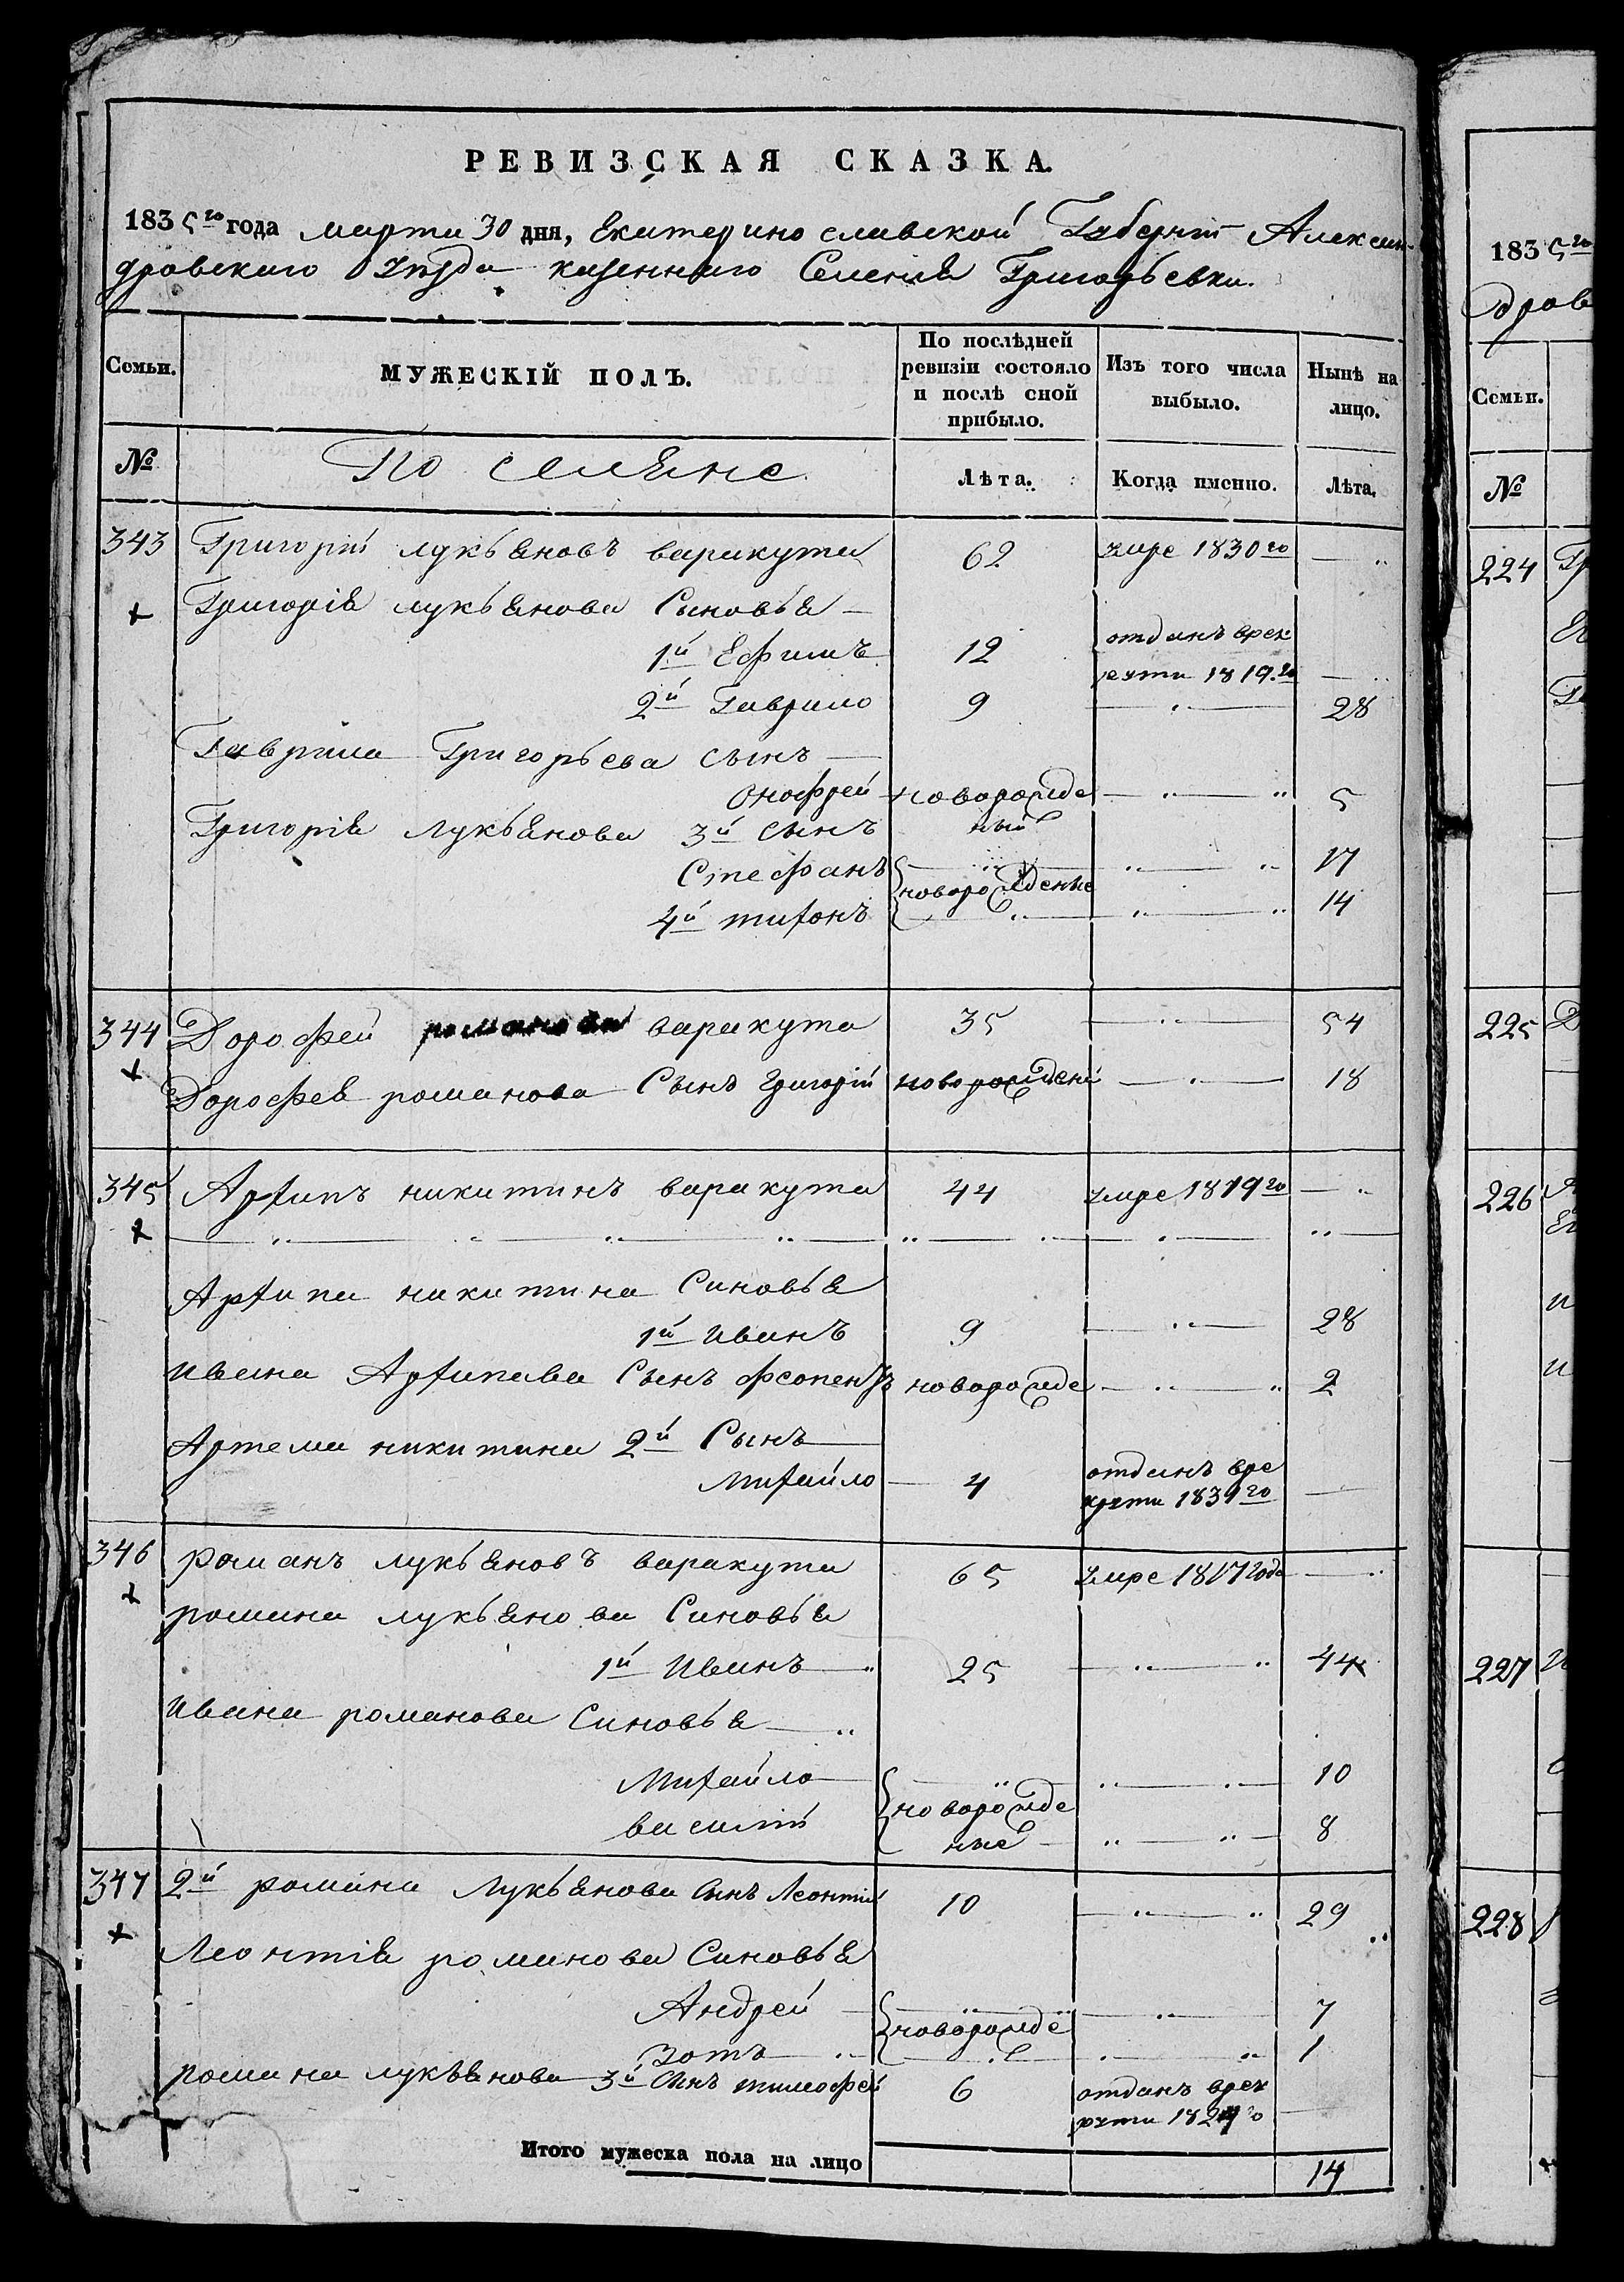 РЕВИЗСКАЯ СКАЗКА.
1835го года марта 30 дня, Екатерино славской Губерніи Алексан-
дровскаго Уѣзда казеннаго Селенія Григорьевки.
Семьи.
МУЖЕСКІЙ ПОЛЪ.
По послѣдней ревизіи состояло и послѣ сной прибыло.
Изъ того числа выбыло.
Нынѣ на лицо.
№
По селяне
Лѣта.
Когда именно.
Лѣта.
343 Григорій лукьяновъ варакута 62 умре 1830го
Григорія лукьянова Сыновья
1й Ефимъ 12 отданъ врек
рути 1819.го
2й Гаврило 9 28
Гаврила Григорьева сынъ
Онофрей новорожде
ный 5
Григорія Лукьянова 3й сынъ
Стефанъ 17
новорожденые
4й тихонъ 14
344 Дорофей романовъ варакута 35 54
Дорофея романова Сынъ Григорій новорожденй 18
345 Архипъ никитинъ варакута 44 умре 1819го
Архипа никитина Синовья
1й иванъ 9 28
ивана Архипава Сынъ фсопенъ новорожде 2
Артема никитина 2й Сынъ
михайло 4 отданъ вре
крути 1831го
346 романъ лукьяновъ варакута 65 умре 1817года
романа лукьянова Синовья
1й Иванъ 25 44
ивана романова Синовья
Михайло 10
новорожде
василій ные 8
347 2й романа Лукьянова Синъ Леонтій 10 29
Леонтія романова Синовья
Андрей 7
новорожде
Зотъ 1
романа лукьянова 3й Синъ тимофей 6 отданъ врек
рути 1824го
Итого мужеска пола на лицо 14
1835го
дров
Семьи.
№
224
225
226
227
228